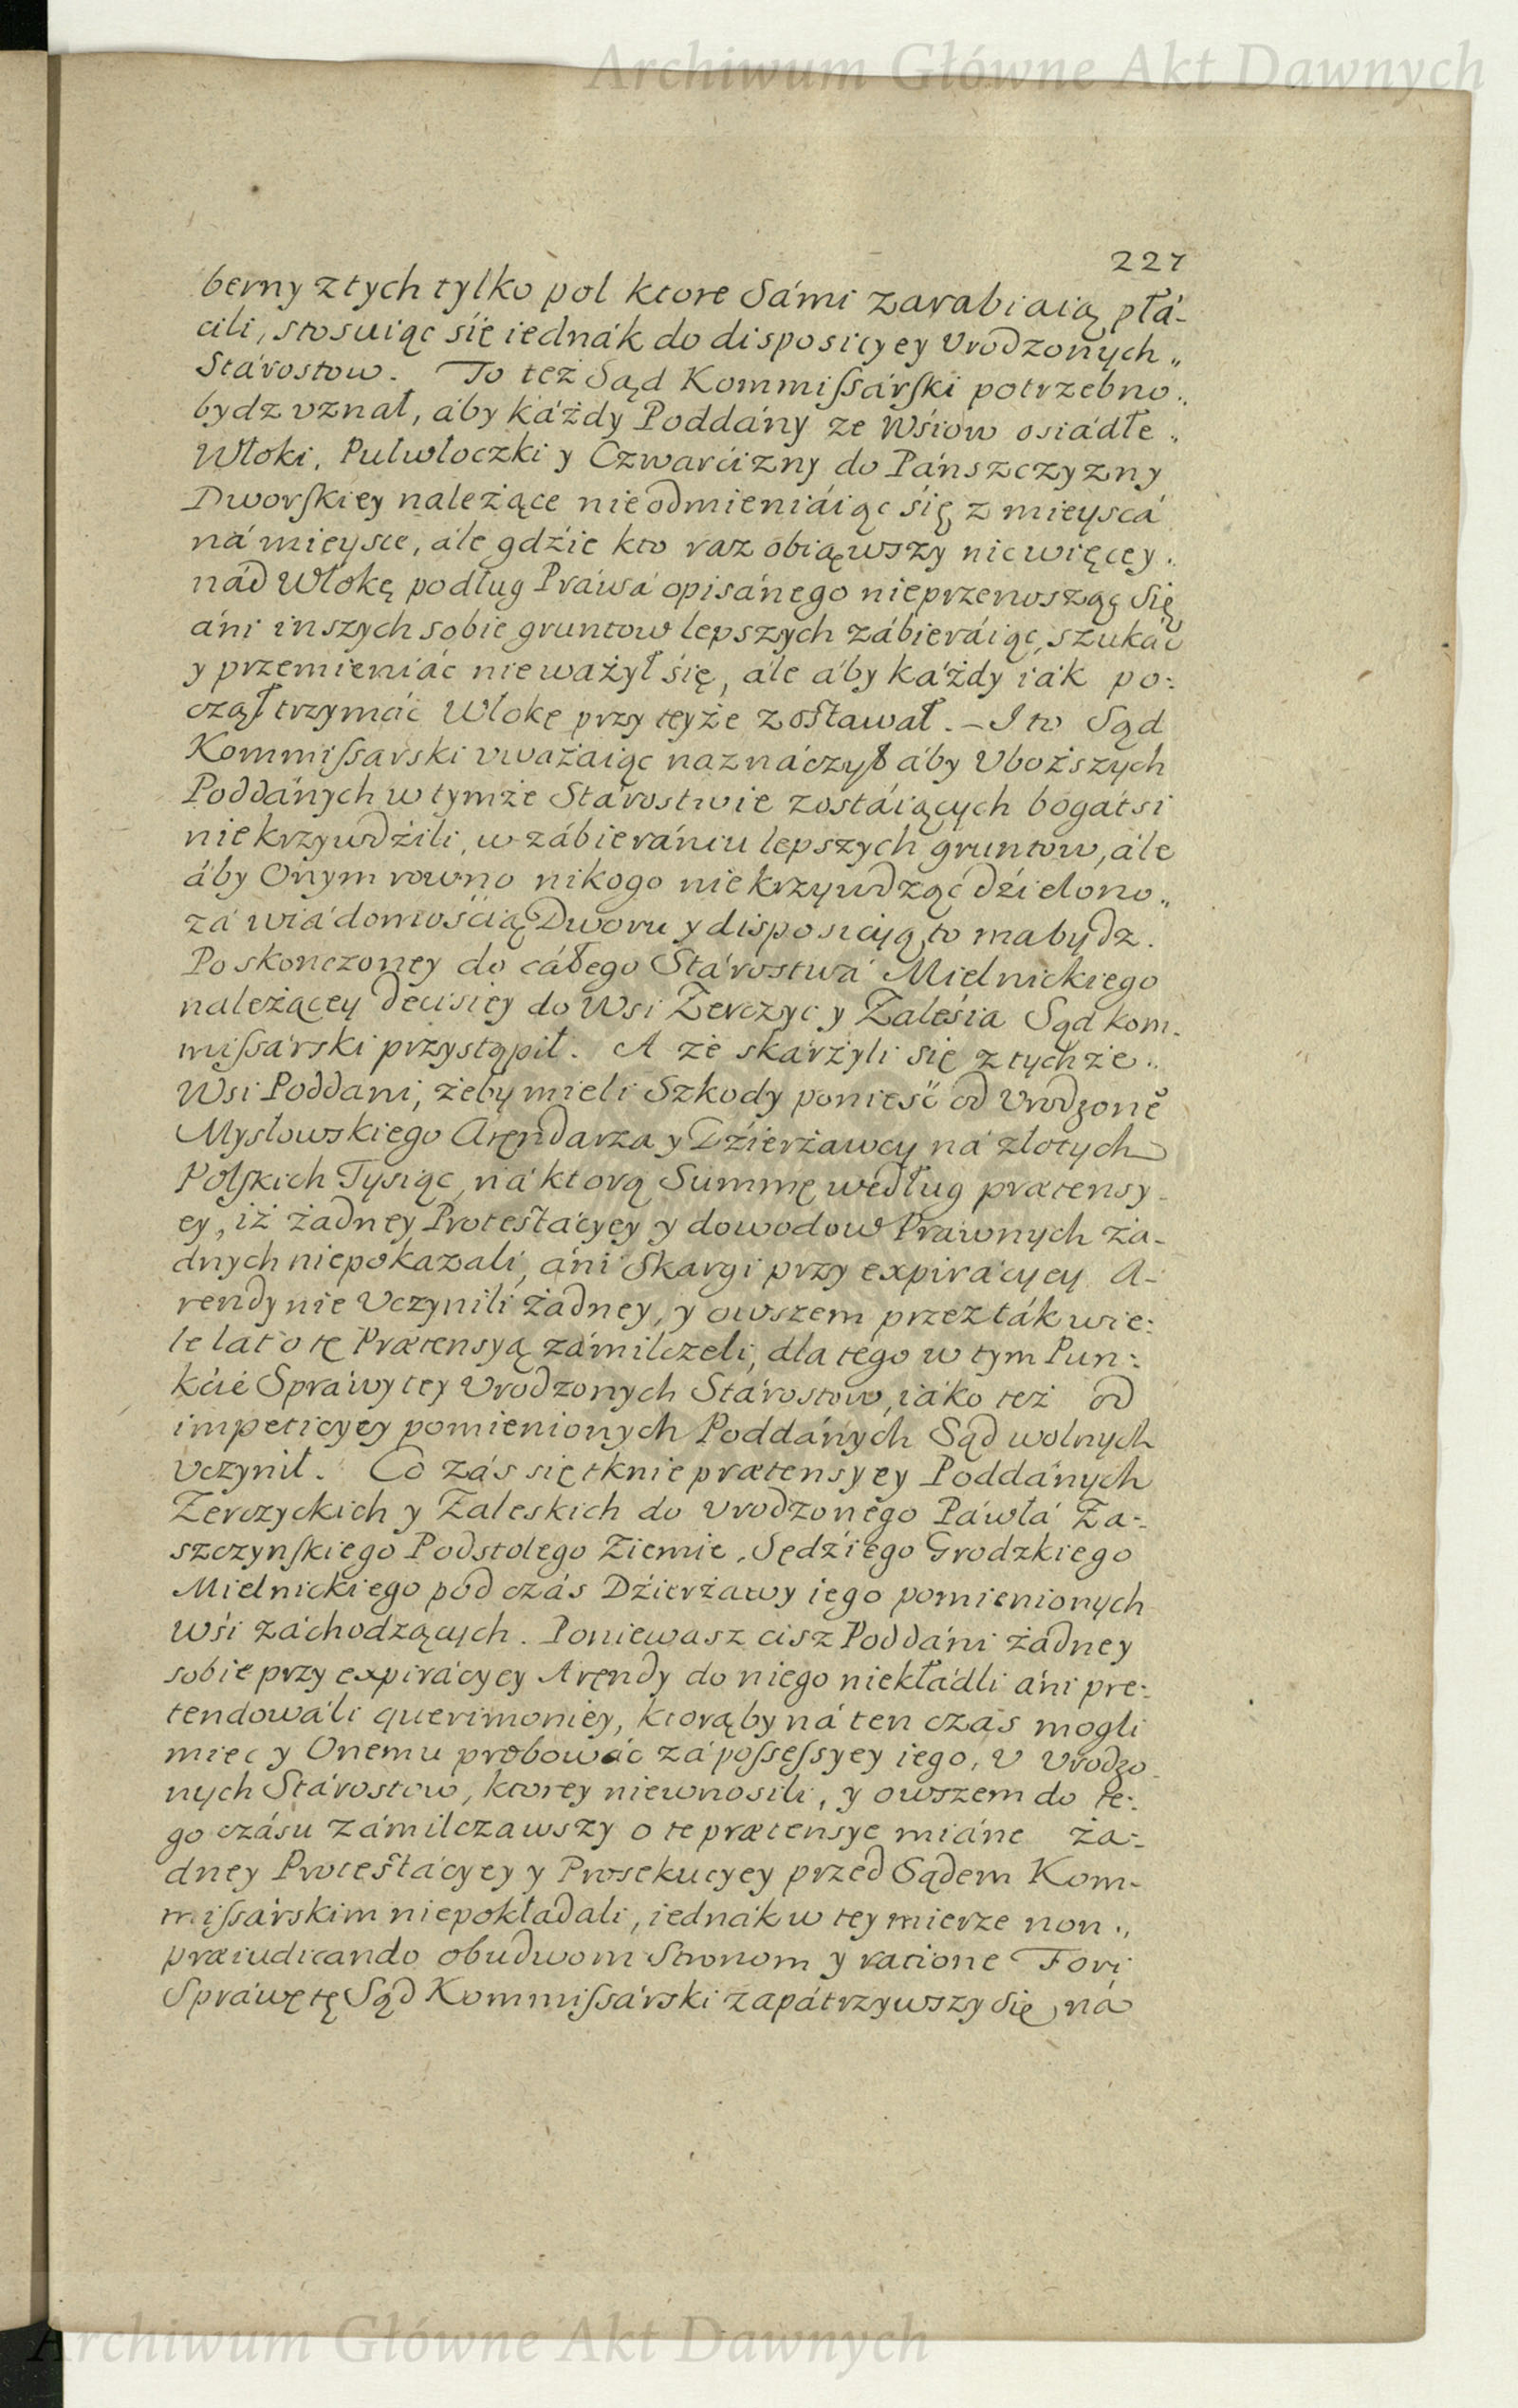 Archiwum Główne Akt Dawnych
227
berny z tych tylko pol ktore sámi zarabiaią płá-
cili, stosuiąc się iednák do disposicyey Vrodzonych „
Stárostow. To też Sąd Kommissárski potrzebno „
bydz vznał, áby káżdy Poddány ze Wsiow osiádłe „
Włoki, Pulwłoczki y Czwarcizny do Pánszczyzny
Dworskiey należące nieodmieniáiąc się z mieyscá
ná mieysce, ále gdźie kto raz obiąwszy nic więcey .
nád Włokę podług Práwá opisánego nieprzenosząc się
áni inszych sobie gruntow lepszych zábieráiąc, szukáć
y przemieniáć nieważył się, ále áby káżdy iák po-:
czął trzymáć Włokę przy teyże zostawał. – I to Sąd
Kommissarski vważaiąc náznáczył áby Vboższych
Poddánych w tymże Stárostwie zostáiących bogátsi
niekrzywdźili, w zábierániu lepszych gruntow, ále
áby Onym rowno nikogo niekrzywdząc dźielono „
zá wiádomością Dworu y disposicią to ma bydz.
Po skonczoney do cáłego Stárostwá Mielnickiego
należącey decisiey do Wsi Zerczyc y Zalésia Sąd kom-
missarski przystąpił. A że skárżyli się z tychże „
Wsi Poddani, żeby mieli Szkody ponieść od Vrodzone
Mysłowskiego Arendarza y Dźierżawcy ná złotych
Polskich Tysiąc, ná ktorą Summę według prætensy-
ey, iż żadney Protestácyey y dowodow Prawnych ża-
dnych niepokazali, áni Skargi przy expirácyey A-
rendy nie Vczynili żadney, y owszem przez ták wie-:
le lat o tę Prætensyą zámilczeli, dla tego w tym Pun-:
kćie Spráwy tey Vrodzonych Stárostow, iáko też od
impeticyey pomienionych Poddánych Sąd wolnych
vczynił. Co zás się tknie prætensyey Poddánych
Zerczyckich y Zaleskich do Vrodzonego Páwłá Za-:
szczynskiego Podstolego Ziemie, Sędźiego Grodzkiego
Mielnickiego pod czás Dźierżawy iego pomienionych
Wśi záchodzących. Poniewasz cisz Poddáni żadney
sobie przy expirácyey Arendy do niego niekłádli áni pre-:
tendowáli querimoniey, ktorąby ná ten czás mogli
miec y Onemu probowác zá possessyey iego, v Vrodzo-
nych Stárostow, ktorey niewnosili, y owszem do te-:
go czásu zámilczawszy o te prætensye miáne ża-:
dney Protestácyey y Prosekucyey przed Sądem Kom-
missárskim niepokładali, iednák w tey mierze non „
præiudicando obudwom Stronom y ratione Fori
Spráwę tę Sąd Kommissárski zapátrzywszy się ná
Archiwum Główne Akt Dawnych